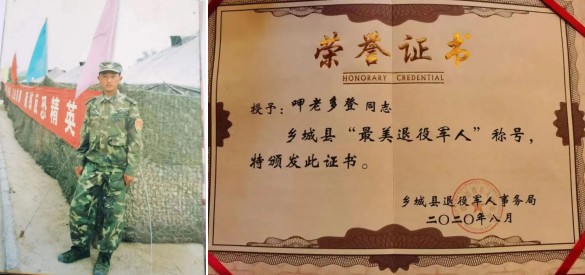 恐精英
荣誉证书
HONORARY CREDENTIAL
授予：呷老多登同志
乡城县“最美退役军人”称号，
特颁发此证书。
乡城县退役军人事务局
二〇二〇年八月